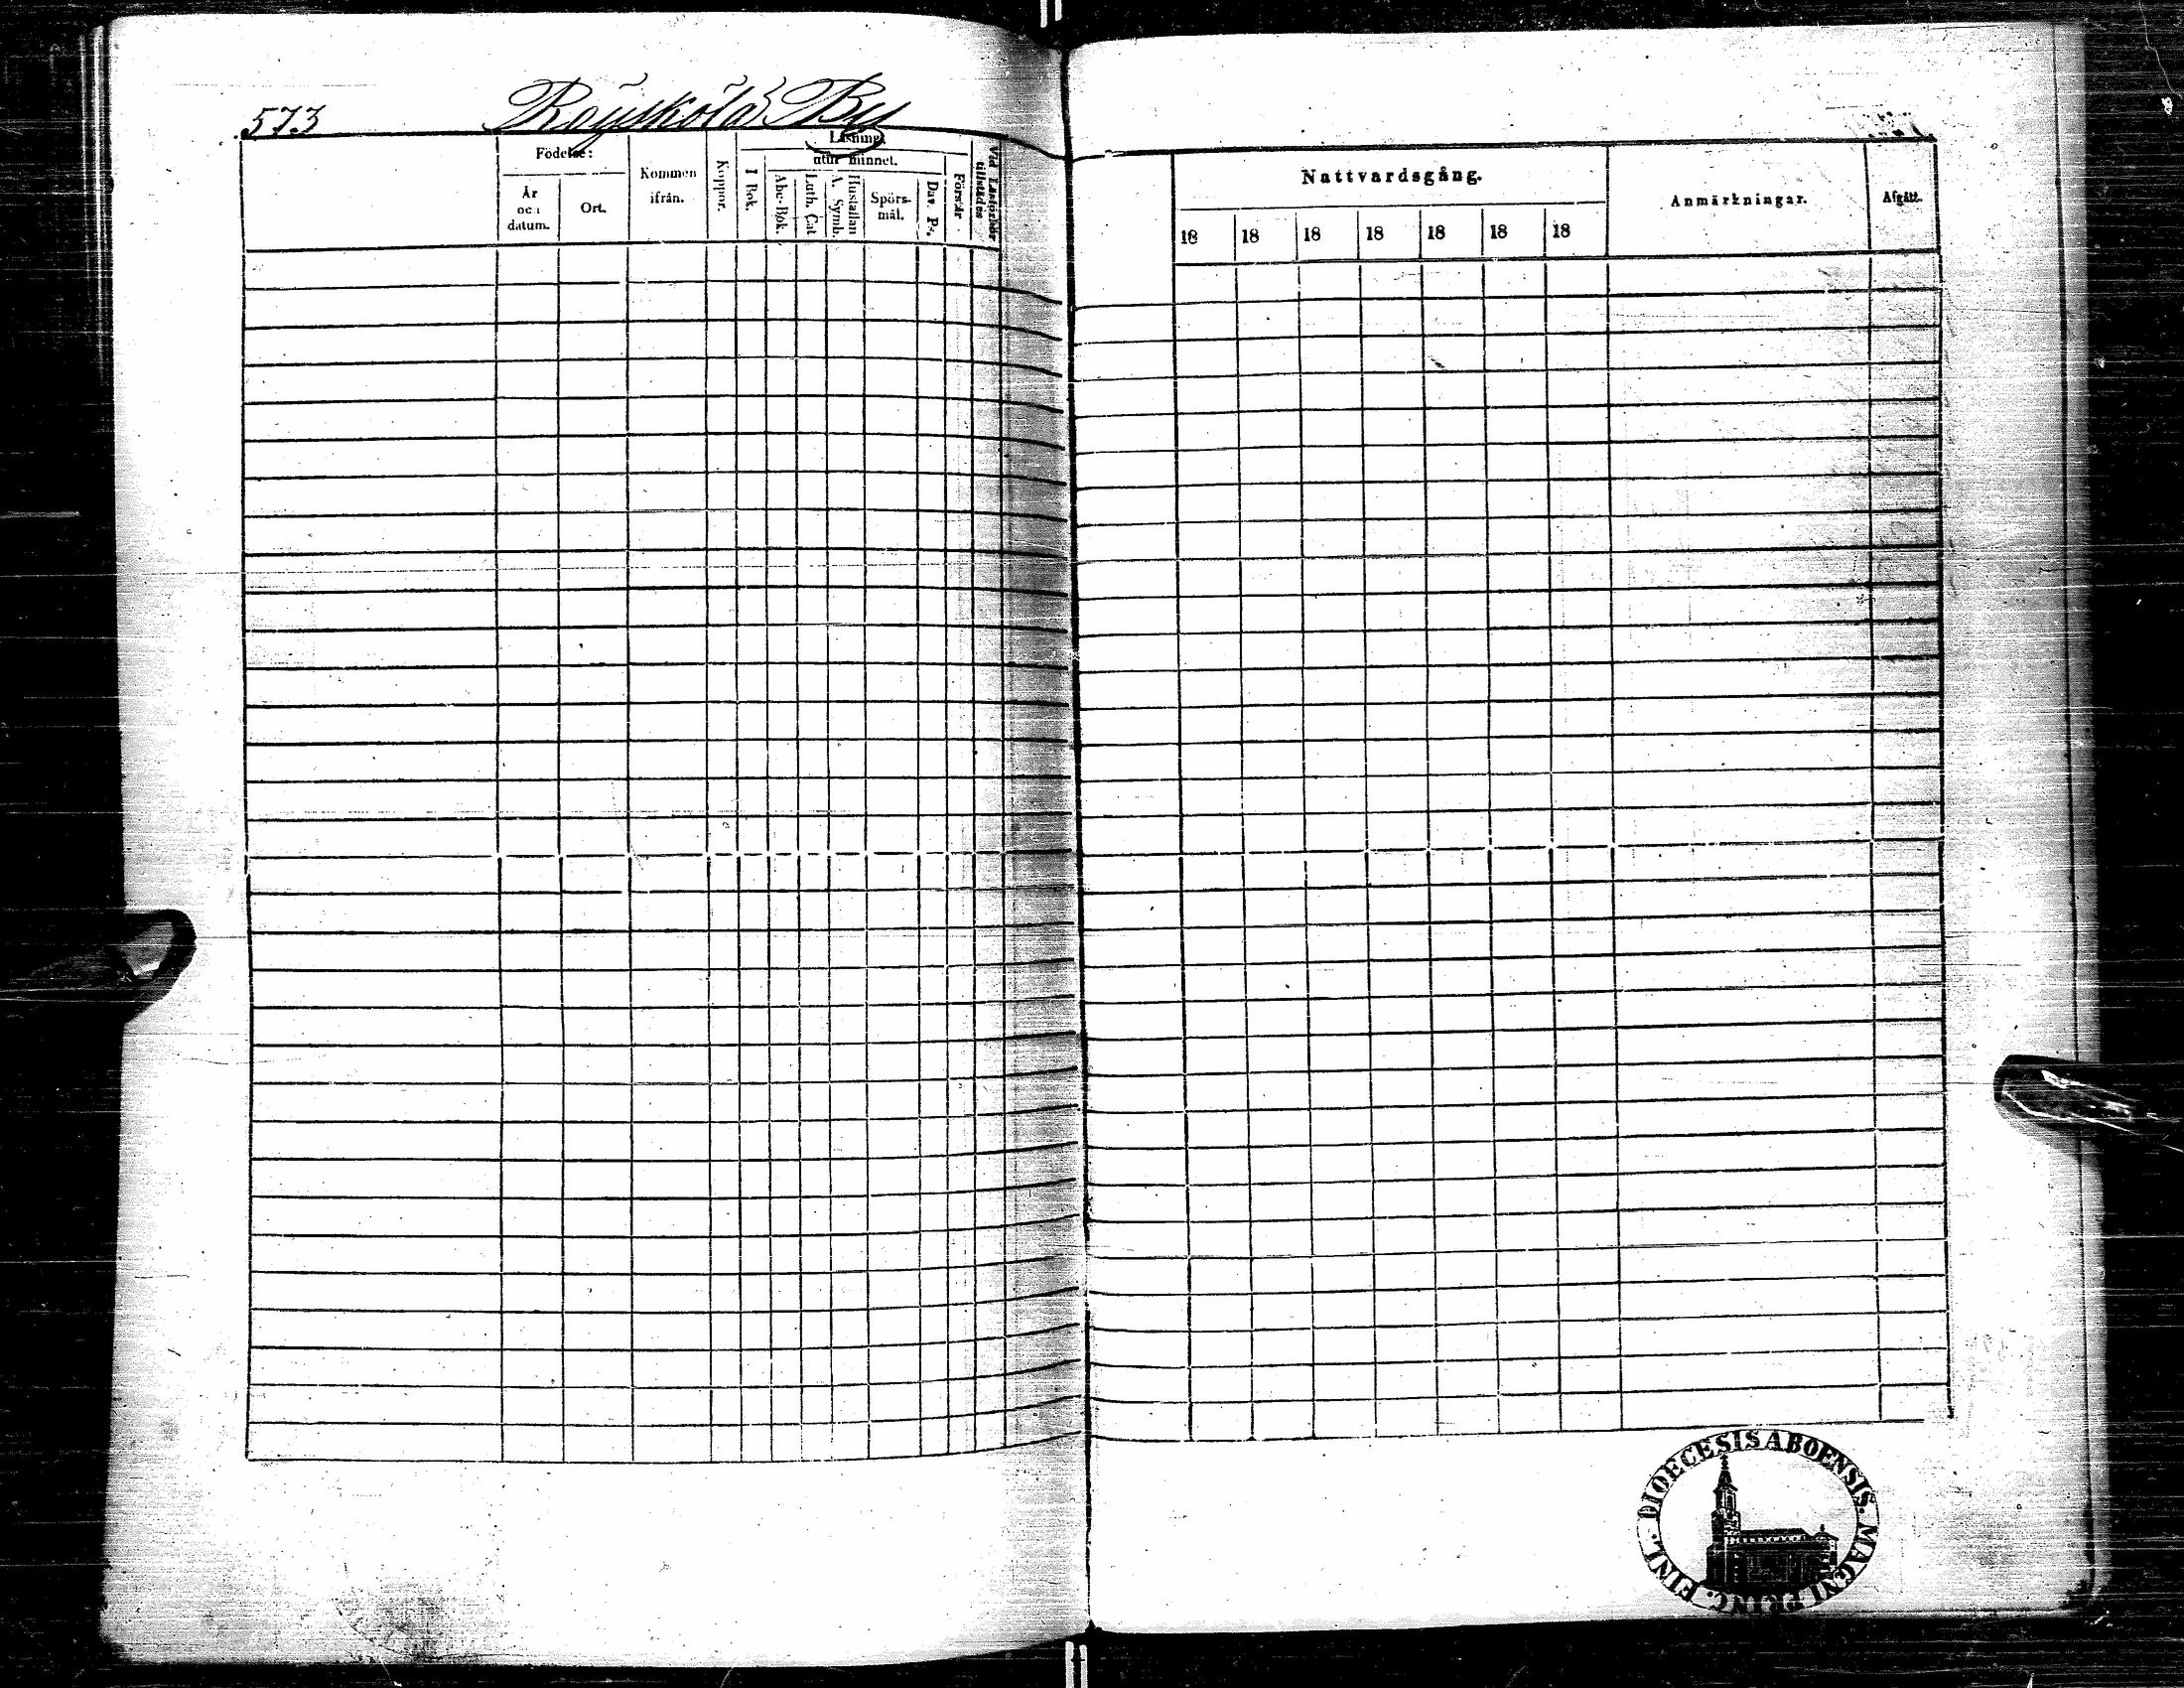 573 Röyskölä By
Födelse:
År
och
datum.
Ort.
Kommen
ifrån.
Koppor.
Läsning.
I Bok.
utur minnet.
Abc-Bok.
Luth. Cat.
A. Symb.
Hustaflan
Spörs-
mål.
Dav. Ps.
Förstår
Vid Läsförhör
tillstädes
Nattvardsgång.
18 18 18 18 18 18 18
Anmärkningar.
Afgått.
DIOECESIS ABOENSIS. MAGNI PRINC. FINL.